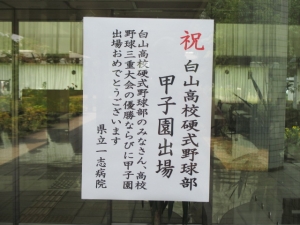 祝
白山高校硬式野球部
甲子園出場
白山高校硬式野球部のみなさん、高校
野球三重大会の優勝ならびに甲子園
出場おめでとうございます
県立一志病院